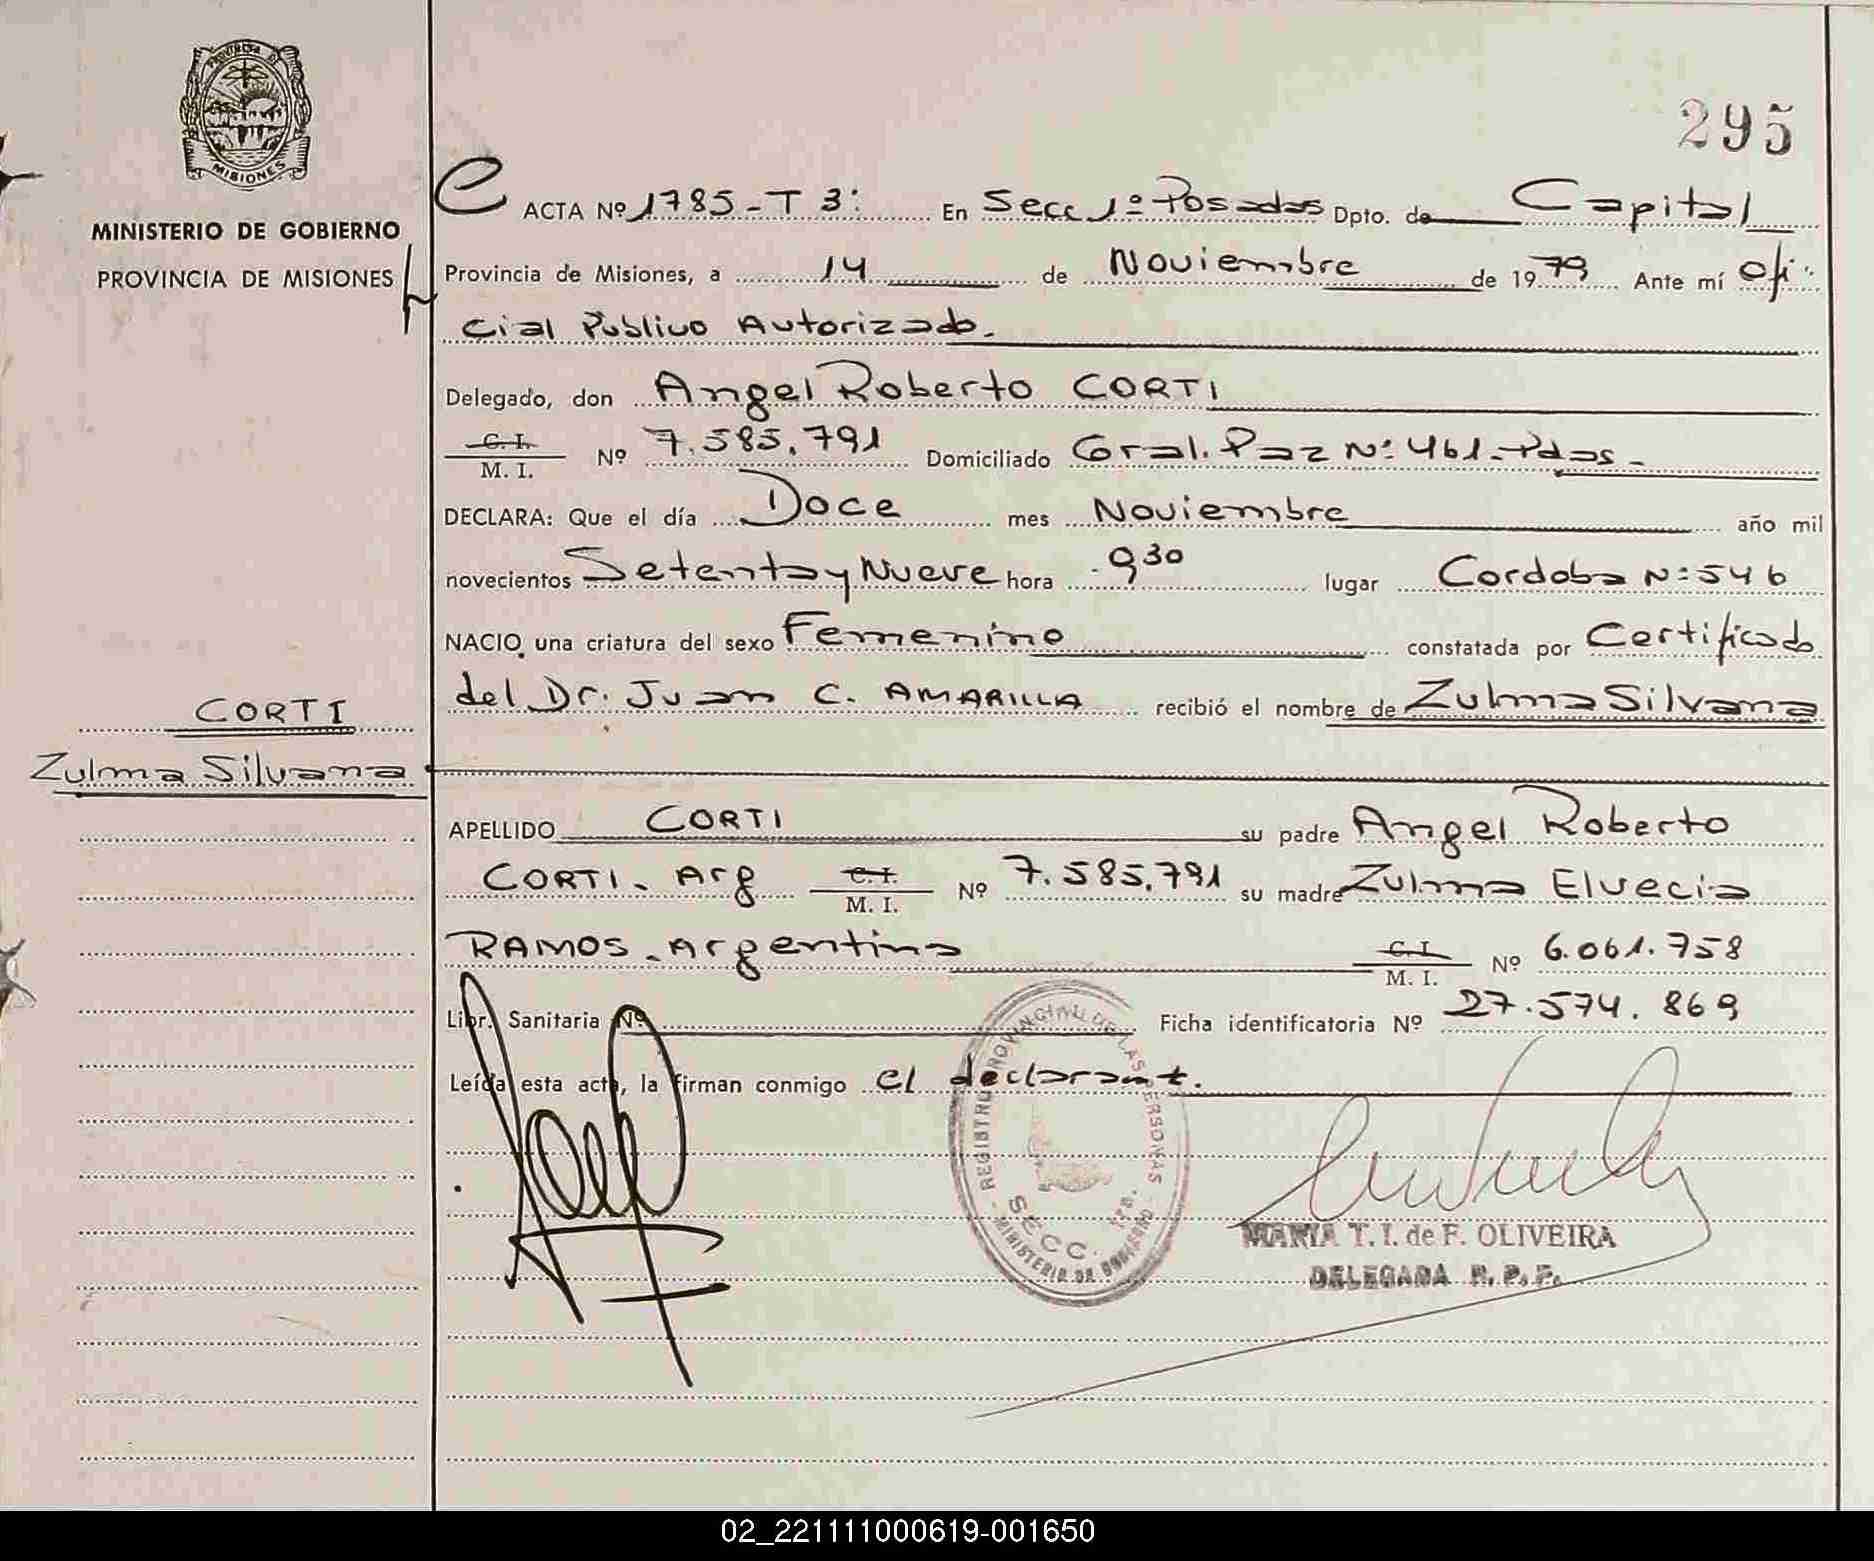 PROVINCIA DE
MISIONES
MINISTERIO DE GOBIERNO
PROVINCIA DE MISIONES
CORTI
Zulma Silvana
295
ACTA Nº 1785-T 3: En Secc 1º Posadas Dpto. de Capital
Provincia de Misiones, a 14 de Noviembre de 1979 Ante mí Ofi
cial Publico Autorizado.
Delegado, don Angel Roberto CORTI
C. I.
M. I. Nº 7.585.791 Domiciliado Gral. Paz Nº 461-Pdas-
DECLARA: Que el día Doce mes Noviembre año mil
novecientos Setenta y Nueve hora 9 30 lugar Cordoba Nº 546
NACIO una criatura del sexo Femenino constatada por Certificado
del Dr. Juan C. AMARILLA recibió el nombre de Zulma Silvana
APELLIDO CORTI su padre Angel Roberto
CORTI. Arg C. I. M. I. Nº 7.585.791 su madre Zulma Elvecia
RAMOS. Argentina C. I. M. I. Nº 6.061.758
Libr. Sanitaria Nº Ficha identificatoria Nº 27.574.869
Leída esta acta, la firman conmigo el declarant.
REGISTRO PROVINCIAL DE LAS PERSONAS
SECC. 1ra.
MINISTERIO DE GOBIERNO
MARIA T. I. de F. OLIVEIRA
DELEGADA R. P. P.
02_221111000619-001650